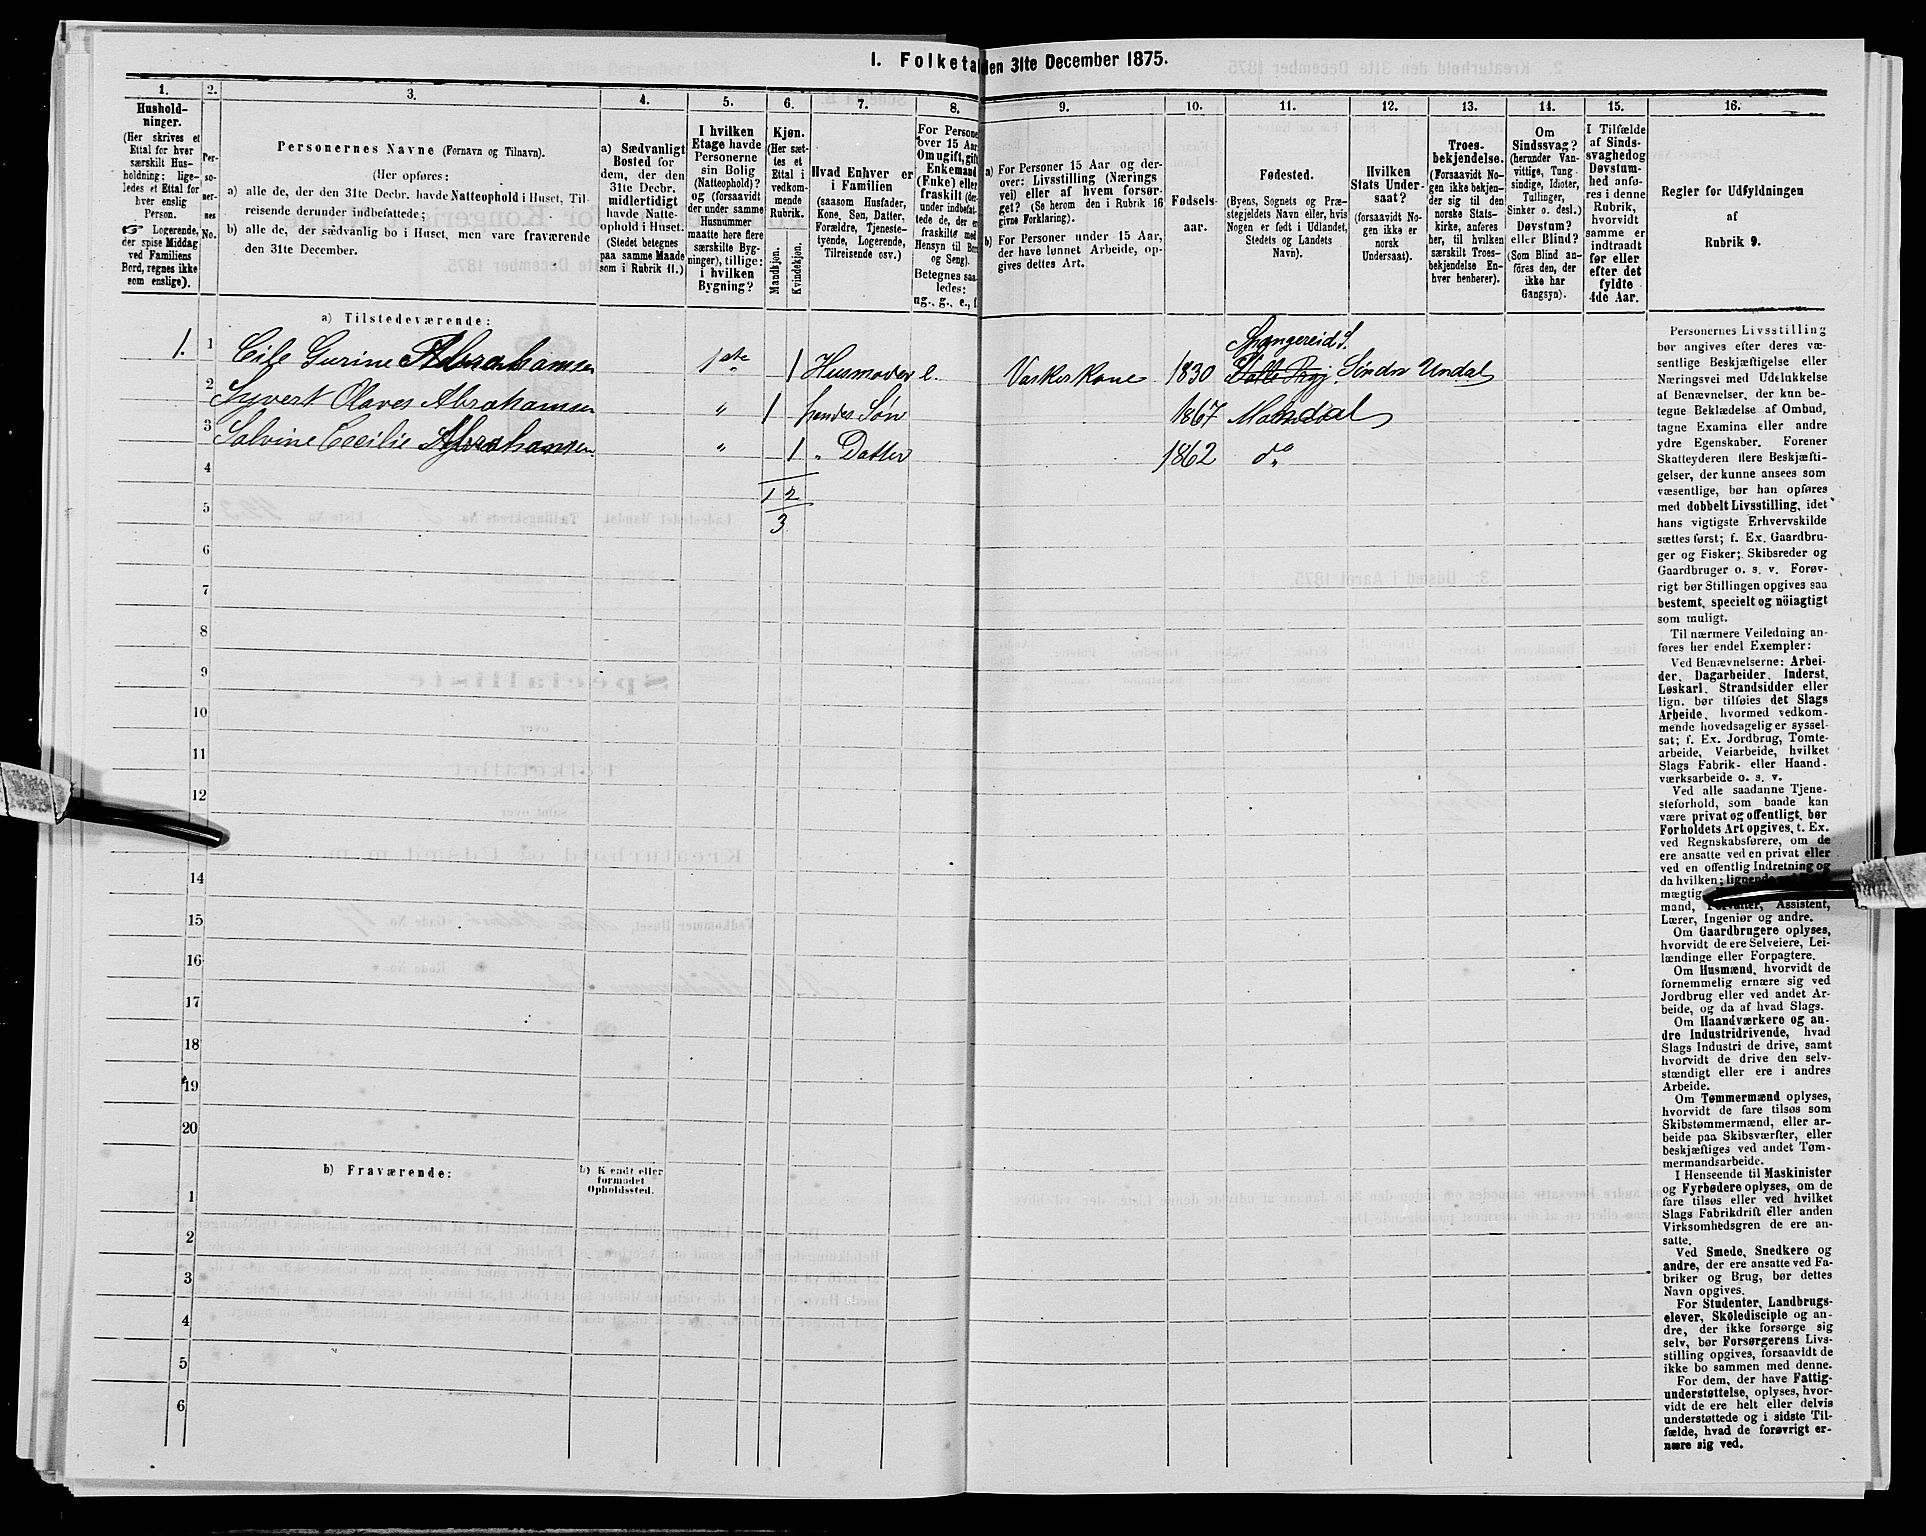 1. Folketal den 31te December 1875.
1.
Hushold-
ninger.
(Her skrives et
Ettal for hver
særskilt Hus-
holdning; lige-
ledes et Ettal for
hver enslig
Person.
☞ Logerende,
der spise Middag
ved Familiens
Bord, regnes ikke
som enslige).
2.
Per-
so-
ner-
nes
No.
3.
Personernes Navne (Fornavn og Tilnavn).
(Her opføres:
a) alle de, der den 31te Decbr. havde Natteophold i Huset, Til-
reisende derunder indbefattede;
b) alle de, der sædvanlig bo i Huset, men vare fraværende
den 31te December.
4.
a) Sædvanligt
Bosted for
dem, der den
31te Decbr.
midlertidigt
havde Natte-
ophold i Huset.
(Stedet betegnes
paa samme Maade
som i Rubrik 11.)
5.
I hvilken
Etage havde
Personerne
sin Bolig
(Natteophold)?
og (forsaavidt
der under samme
Husnummer
maatte høre flere
særskilte Byg-
ninger), tillige:
i hvilken
Bygning?
6.
Kjøn.
(Her sæt-
tes et
Ettal i
vedkom-
mende
Rubrik.
Mandkjøn.
Kvindekjøn.
7.
Hvad Enhver er
i Familien
(saasom Husfader,
Kone, Søn, Datter,
Forældre, Tjeneste-
tyende, Logerende,
Tilreisende osv.)
8.
For Persone
over 15 Aar
Omugift, gift
Enkemand
(Enke) eller
fraskilt (der-
under indbefat-
tede de, der er
fraskilte med
Hensyn til Bord
og Seng).
Betegnes saa-
ledes:
ug., g., e., f.
9.
a) For Personer 15 Aar og der-
over: Livsstilling (Nærings
vei) eller af hvem forsør-
get? (Se herom den i Rubrik 16
givne Forklaring).
b) For Personer under 15 Aar,
der have lønnet Arbeide, op-
gives dettes Art.
10.
Fødsels-
aar.
11.
Fødested.
(Byens, Sognets og Præ-
stegjeldets Navn eller, hvis
Nogen er født i Udlandet,
Stedets og Landets
Navn).
12.
Hvilken
Stats Under-
saat?
(forsaavidt No-
gen ikke er
norsk
Undersaat).
13.
Troes-
bekjendelse.
(Forsaavidt No-
gen ikke bekjen-
der sig til den
norske Stats-
kirke, anføres
her, til hvilken
særskilt Troes-
bekjendelse En-
hver henhører).
14.
Om
Sindssvag?
(herunder Van-
vittige, Tung-
sindige, Idioter,
Sinker o. desl.)
Døvstum?
eller Blind?
(Som Blind an-
føres den, der
ikke har
Gangsyn).
15.
I Tilfælde
af Sinds-
svaghedog
Døvstum-
hed anfø-
res i denne
Rubrik,
hvorvidt
samme er
indtraadt
før eller
efter det
fyldte
4de Aar.
16.
Regler for Udfyldningen
af
Rubrik 9.
a) Tilstedeværende:
1. 1 Cile Gurine Abrahamsen 1ste 1 Husmoder e. Vaskerkone 1830 Spangereid S. Söndre Undal
2 Syvert Olaves Abrahamsen " 1 hendes Søn 1867 Mandal
3 Salvine Cecilie Abrahamsen " 1 " Datter 1862 do
4
1 2
5
3
6
7
8
9
10
11
12
14
15
16
17
18
19
20
b) Fraværende:
b) Kjendt eller
formodet
Opholdssted.
1
2
3
4
5
6
Personernes Livsstilling
bør angives efter deres væ-
sentlige Beskjæftigelse eller
Næringsvei med Udelukkelse
af Benævnelser, der kun be-
tegne Beklædelse af Ombud,
tagne Examina eller andre
ydre Egenskaber. Forener
Skatteyderen flere Beskjæfti-
gelser, der kunne ansees som
væsentlige, bør han opføres
med dobbelt Livsstilling, idet
hans vigtigste Erhvervskilde
sættes først; f. Ex. Gaardbru-
ger og Fisker; Skibsreder og
Gaardbruger o. s. v. Forøv-
rigt bør Stillingen opgives saa
bestemt, specielt og nöiagtigt
som muligt.
Til nærmere Veiledning an-
føres her endel Exempler:
Ved Benævnelserne: Arbei-
der, Dagarbeider, Inderst,
Løskarl, Strandsidder eller
lign. bør tilføies det Slags
Arbeide, hvormed vedkom-
mende hovedsagelig er syssel-
sat; f. Ex. Jordbrug, Tomte-
arbeide, Veiarbeide, hvilket
Slags Fabrik- eller Haand-
værksarbeide o. s. v.
Ved alle saadanne Tjene-
steforhold, som baade kan
være privat og offentligt, bør
Forholdets Art opgives, t. Ex.
ved Regnskabsførere, om de
ere ansatte ved en privat eller
ved en offentlig Indretning og
da hvilken; lignende
mægtig
mand, Forvalter, Assistent,
Lærer, Ingeniør og andre.
Om Gaardbrugere oplyses,
hvorvidt de ere Selveiere, Lei-
lændinge eller Forpagtere.
Om Husmænd, hvorvidt de
fornemmelig ernære sig ved
Jordbrug eller ved andet Ar-
beide, og da af hvad Slags.
Om Haandværkere og an-
dre Industridrivende, hvad
Slags Industri de drive, samt
hvorvidt de drive den selv-
stændigt eller ere i andres
Arbeide.
Om Tømmermænd oplyses,
hvorvidt de fare tilsøs som
Skibstømmermænd, eller ar-
beide paa Skibsværfter, eller
beskjæftiges ved andet Tøm-
mermandsarbeide.
I Henseende til Maskinister
og Fyrbødere oplyses, om de
fare tilsøs eller ved hvilket
Slags Fabrikdrift eller anden
Virksomhedsgren de ere an-
satte.
Ved Smede, Snedkere og
andre, der ere ansatte ved Fa-
briker og Brug, bør dettes
Navn opgives.
For Studenter, Landbrugs-
elever, Skoledisciple og an-
dre, der ikke forsørge sig
selv, bør Forsørgerens Livs-
stilling opgives, forsaavidt de
ikke bo sammen med denne.
For dem, der have Fattig-
understøttelse, oplyses, hvor-
vidt de ere helt eller delvis
understøttede og i sidste Til-
fælde, hvad de forøvrigt er-
nære sig ved.